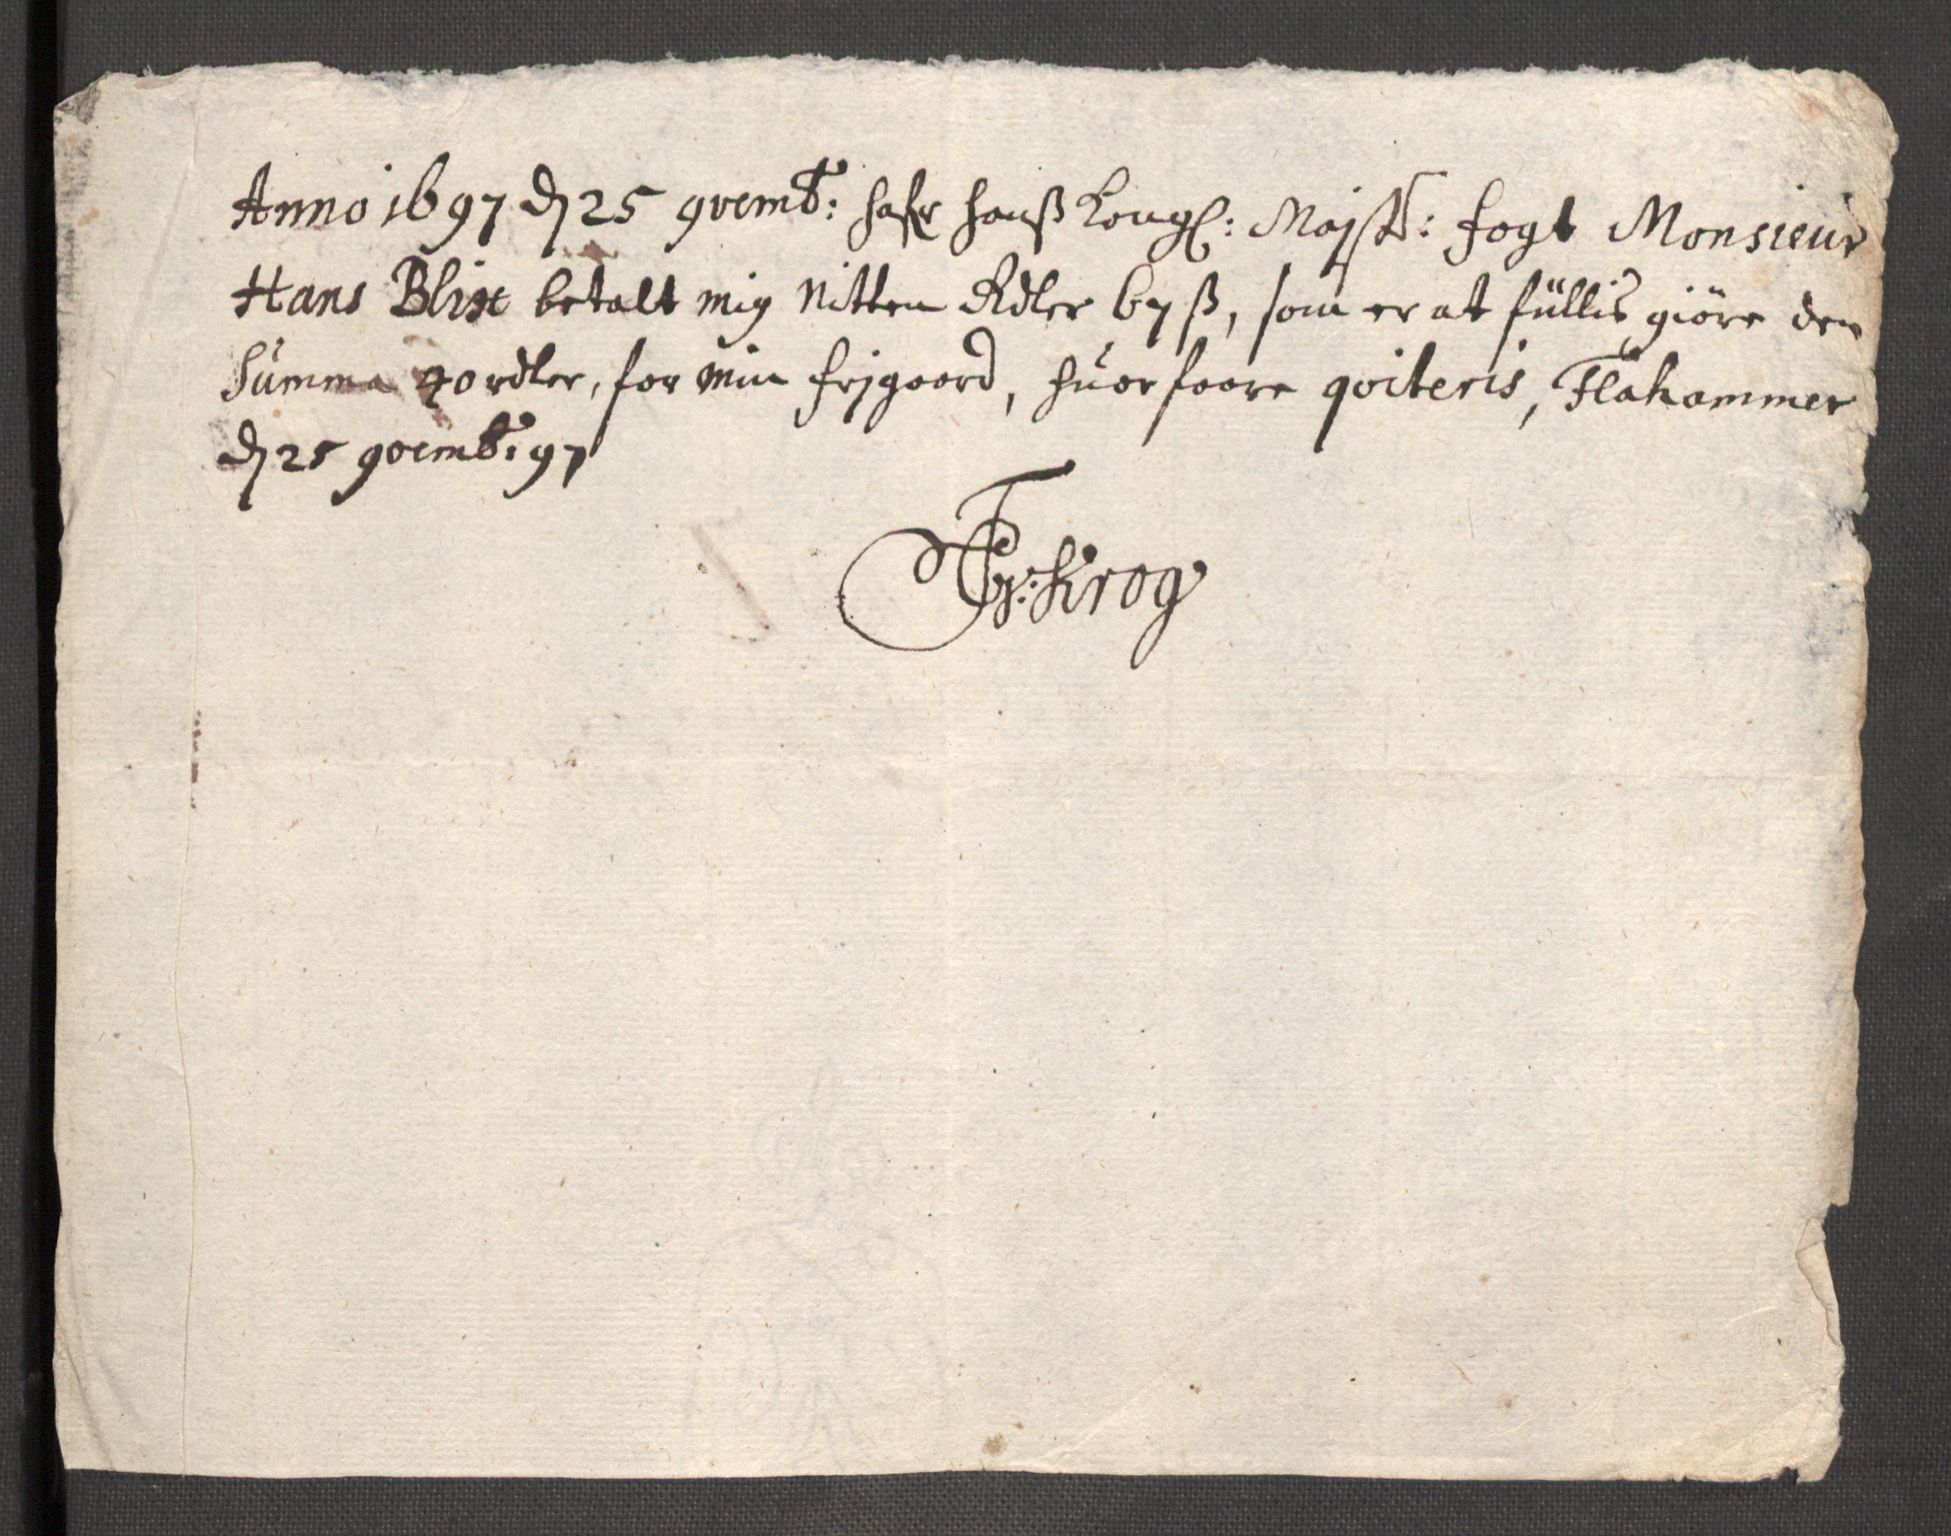 Anno 1697 d 25 9vemb: hafr Hanß Kongl: Majst: fogt Monsieur
Hans Blix betalt mig Nitten Rdler 67 ß, som er at füllis giöre den
Summa 40 rdler, for min frjgaard, huorfaare qviteris, Flahammer
d 25 9vemb: 97
Fr: Krog